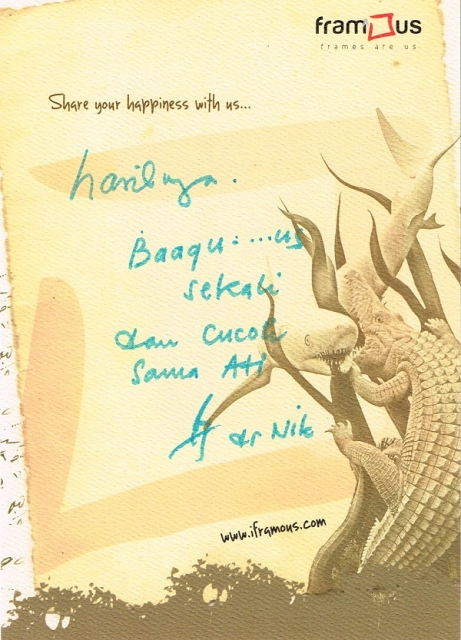 framous
frames are us
Share your happiness with us...
hasilnya.
Baagu....us
sekali
dan Cucok
Sama Ati
dr Nik
www.iframous.com